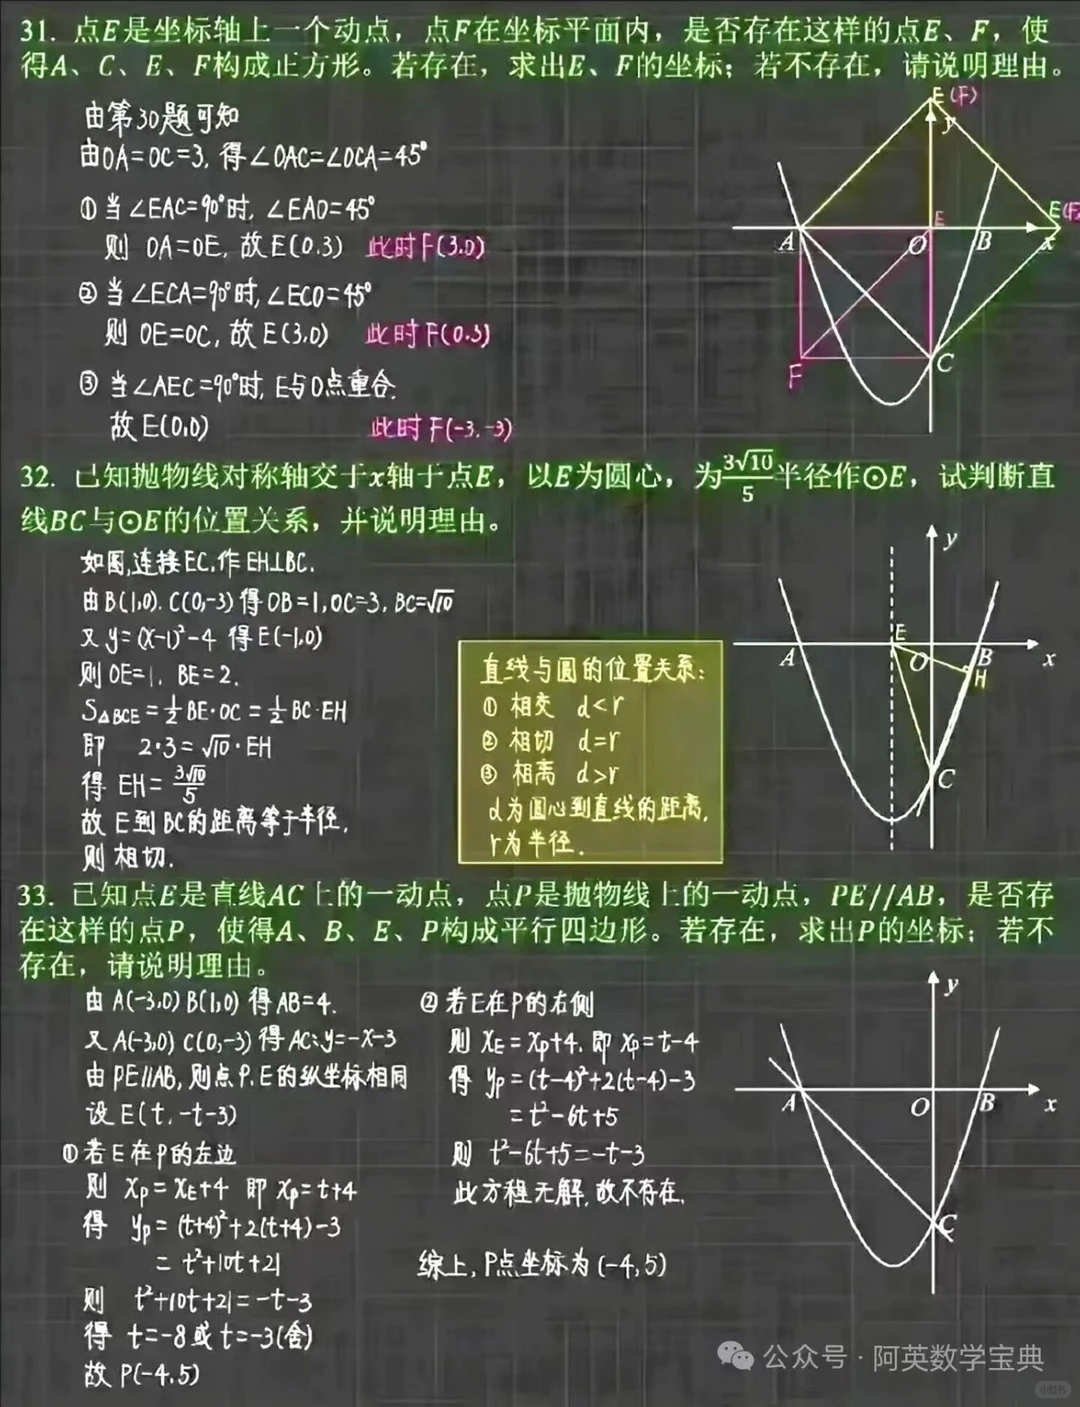 31. 点E是坐标轴上一个动点，点F在坐标平面内，是否存在这样的点E、F，使
得A、C、E、F构成正方形。若存在，求出E、F的坐标；若不存在，请说明理由。
由第30题可知
由OA=OC=3, 得∠OAC=∠OCA=45°
①当∠EAC=90°时, ∠EAO=45°
则 OA=OE, 故E(0.3) 此时F(3.0)
②当∠ECA=90°时, ∠ECO=45°
则 OE=OC, 故E(3.0) 此时F(0.3)
③当∠AEC=90°时, E与O点重合.
故E(0,0) 此时F(-3.-3)
E(F)
y
A
O
E
B
E(F)
x
F
C
32. 已知抛物线对称轴交于x轴于点E，以E为圆心，为3√10/5半径作⊙E，试判断直
线BC与⊙E的位置关系，并说明理由。
如图,连接EC.作EH⊥BC.
由B(1,0). C(0,-3)得OB=1,OC=3, BC=√10
又y=(x-1)²-4 得E(-1,0)
则OE=1, BE=2.
S△BCE=½BE·OC=½BC·EH
即 2·3=√10·EH
得 EH=3√10/5
故E到BC的距离等于半径.
则相切.
直线与圆的位置关系:
① 相交 d<r
② 相切 d=r
③ 相离 d>r
d为圆心到直线的距离.
r为半径.
y
E
A
O
B
x
H
C
33. 已知点E是直线AC上的一动点，点P是抛物线上的一动点，PE//AB，是否存
在这样的点P，使得A、B、E、P构成平行四边形。若存在，求出P的坐标；若不
存在，请说明理由。
由A(-3,0)B(1,0)得AB=4.
又A(-3,0)C(0,-3)得AC:y=-x-3
由PE//AB,则点P.E的纵坐标相同
设E(t,-t-3)
①若E在P的左边
则 xp=xE+4 即 xp=t+4
得 yp=(t+4)²+2(t+4)-3
=t²+10t+21
则 t²+10t+21=-t-3
得 t=-8或t=-3(舍)
故P(-4.5)
②若E在P的右侧
则 xE=xp+4. 即 xp=t-4
得 yp=(t-4)²+2(t-4)-3
=t²-6t+5
则 t²-6t+5=-t-3
此方程无解,故不存在.
综上,P点坐标为(-4,5)
y
A
O
B
x
C
公众号·阿英数学宝典
小红书